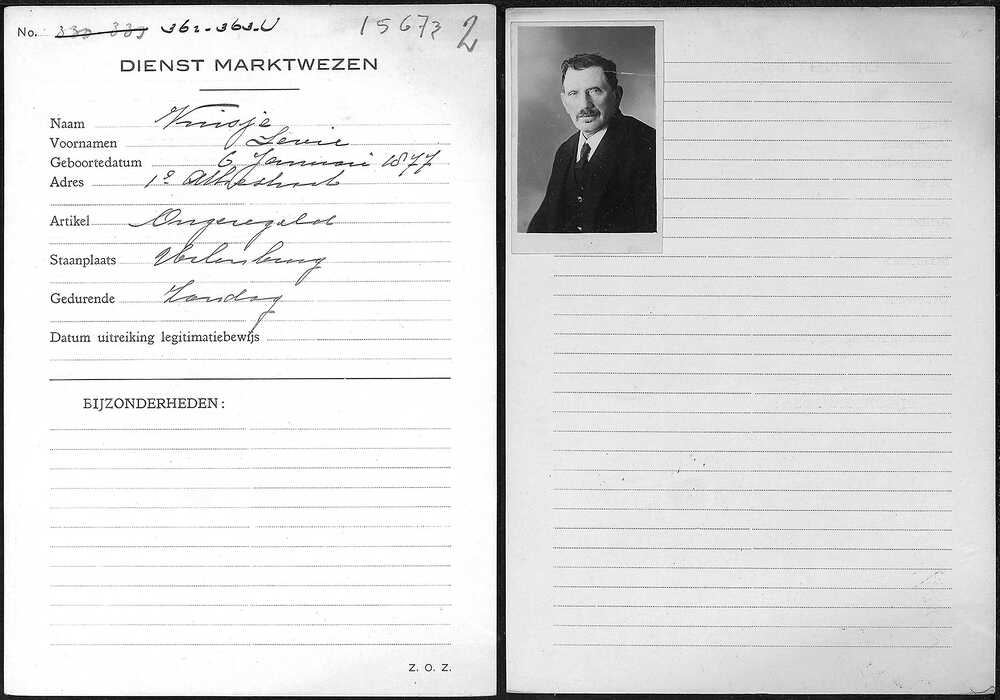 No. 338 339 362-363-U 15673 2
DIENST MARKTWEZEN
Naam Kuisje
Voornamen Levie
Geboortedatum 6 Januari 1877
Adres 1e
Artikel Ongeregeld
Staanplaats Uilenburg
Gedurende Zondag
Datum uitreiking legitimatiebewijs
BIJZONDERHEDEN:
Z. O. Z.